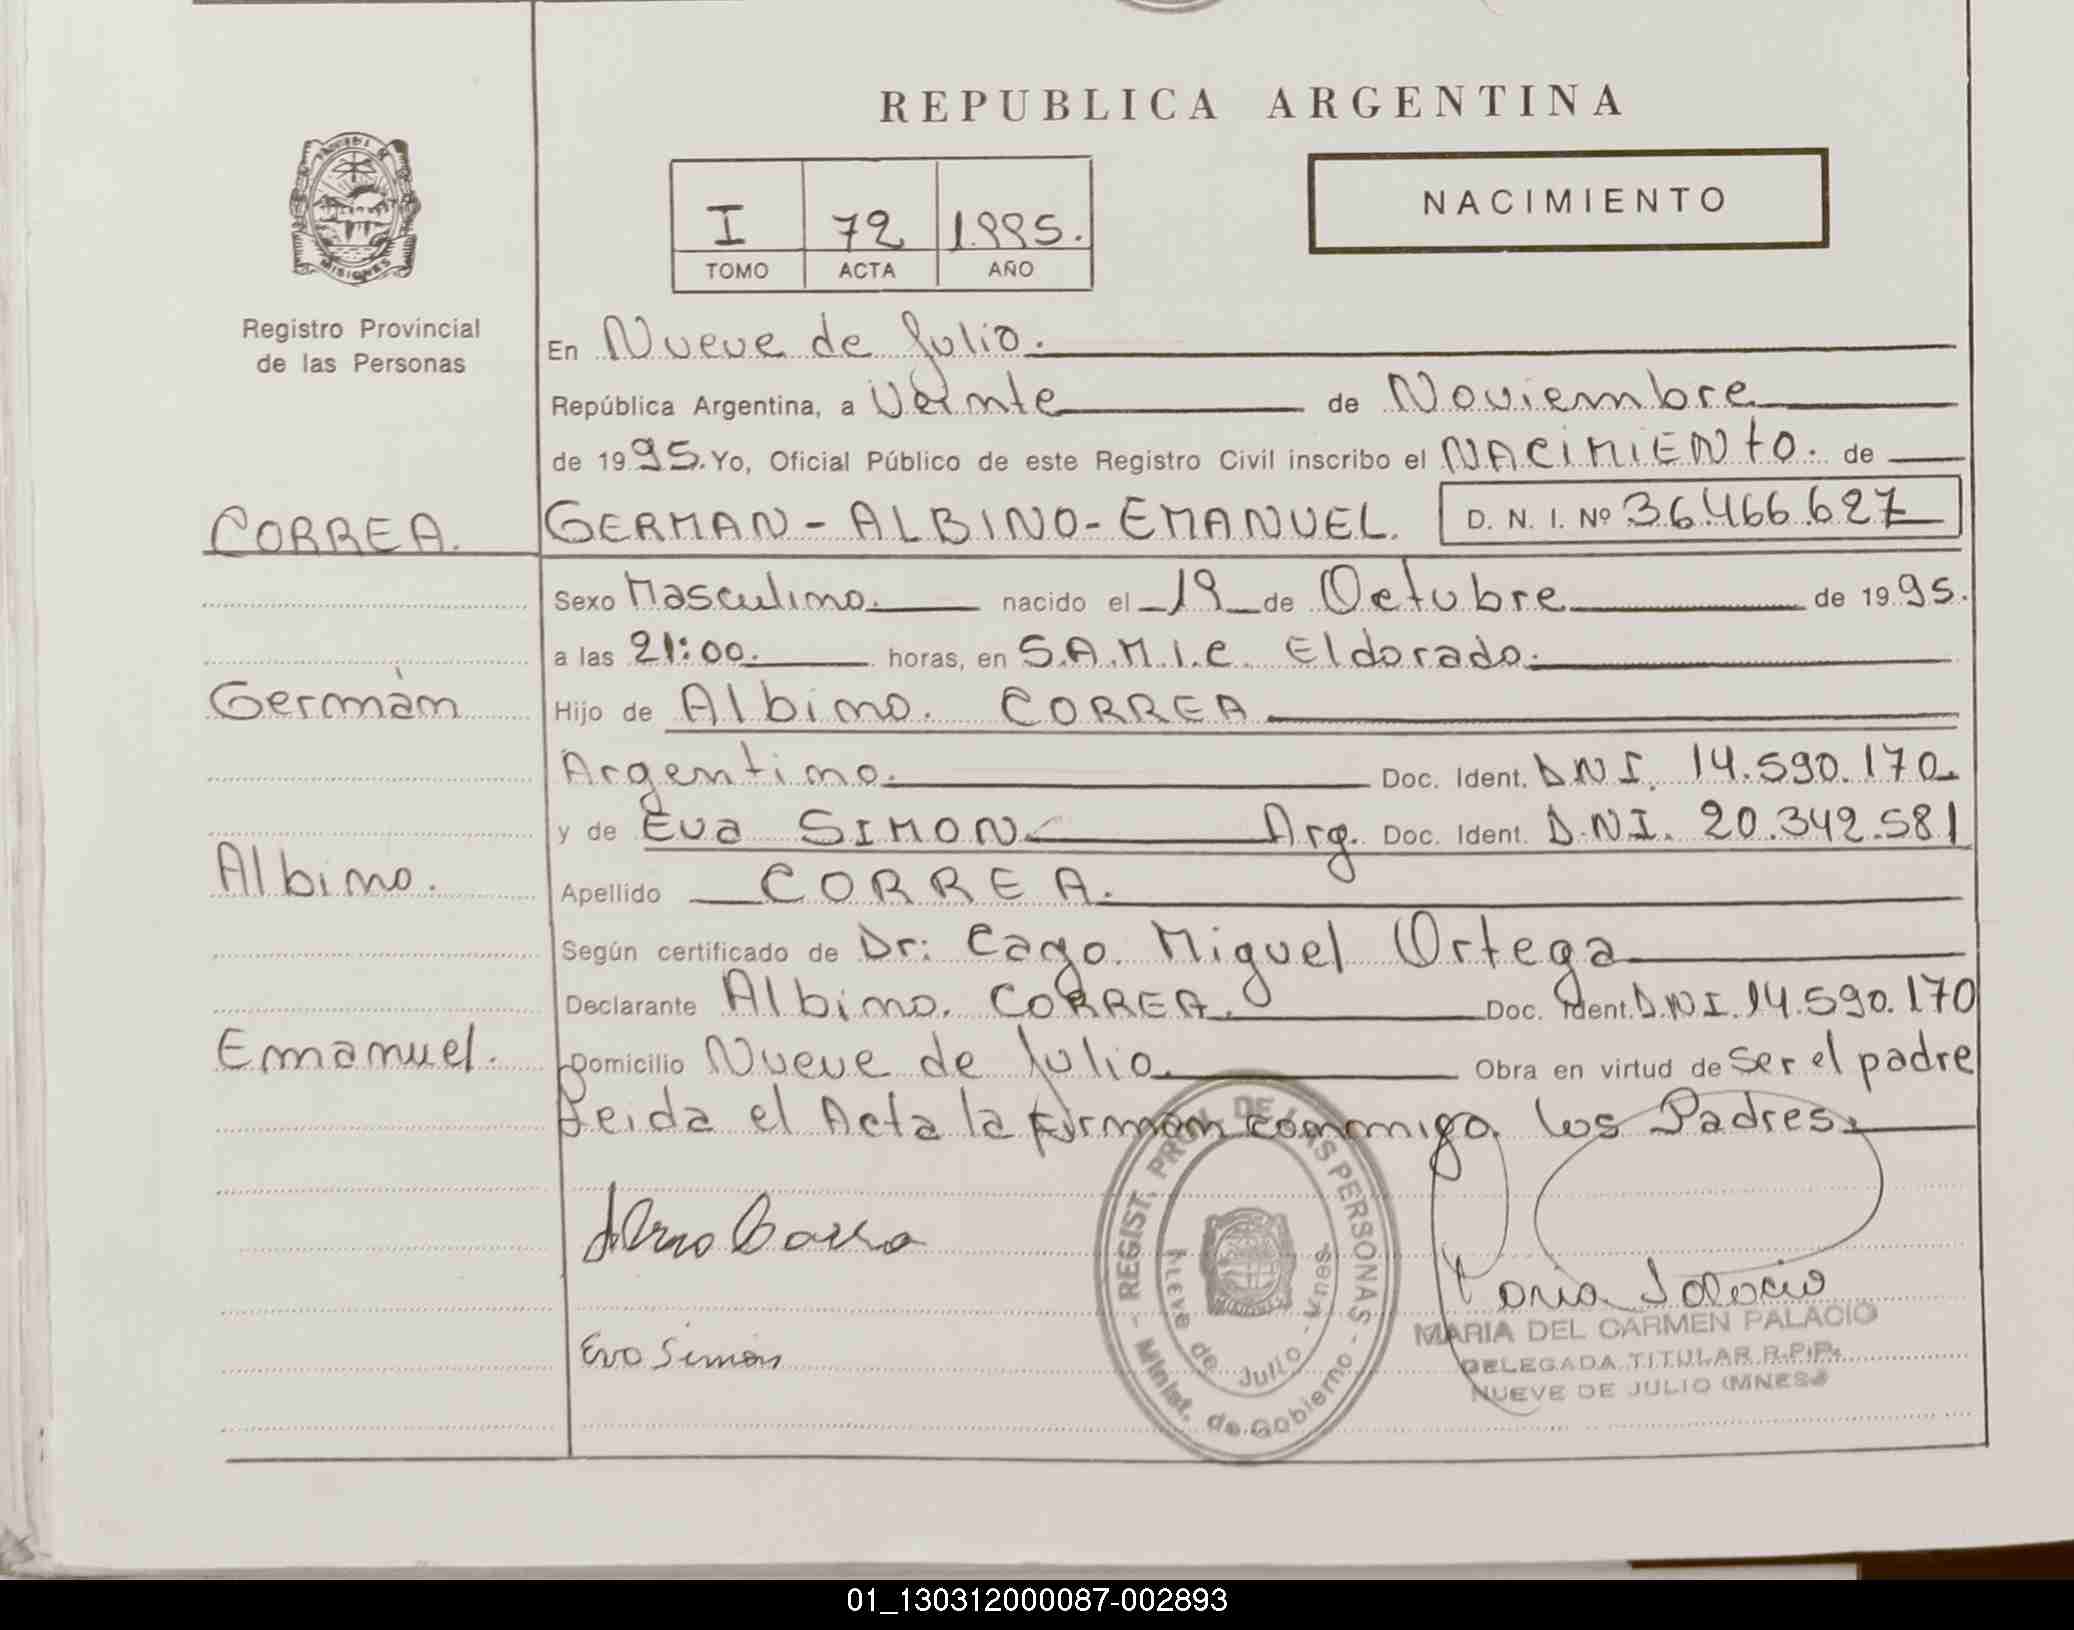 REPUBLICA ARGENTINA
MISIONES
Registro Provincial
de las Personas
I 72 1.995.
TOMO ACTA AÑO
NACIMIENTO
En Nueve de Julio.
República Argentina, a Veinte de Noviembre
de 1995. Yo, Oficial Público de este Registro Civil inscribo el NACIMIENTO. de
CORREA. GERMAN-ALBINO-EMANUEL. D. N. I. Nº 36.466.627
Sexo Masculino. nacido el 19 de Octubre de 1995.
a las 21:00. horas, en S.A.M.I.C. Eldorado.
Germán Hijo de Albino. CORREA
Argentino. Doc. Ident. DNI. 14.590.170.
y de Eva SIMON Arg. Doc. Ident. D.NI. 20.342.581
Albino. Apellido CORREA.
Según certificado de Dr: Cayo Miguel Ortega
Declarante Albino. CORREA. Doc. Ident. D.NI. 14.590.170
Emanuel. Domicilio Nueve de Julio. Obra en virtud de ser el padre
Leida el Acta la firman conmigo los Padres.
REGIST. PROV. DE LAS PERSONAS - Minist. de Gobierno -
Nueve de Julio - Mnes.
MISIONES
Eva Simon
MARIA DEL CARMEN PALACIO
DELEGADA TITULAR R.P.P.
NUEVE DE JULIO (MNES.)
01_130312000087-002893